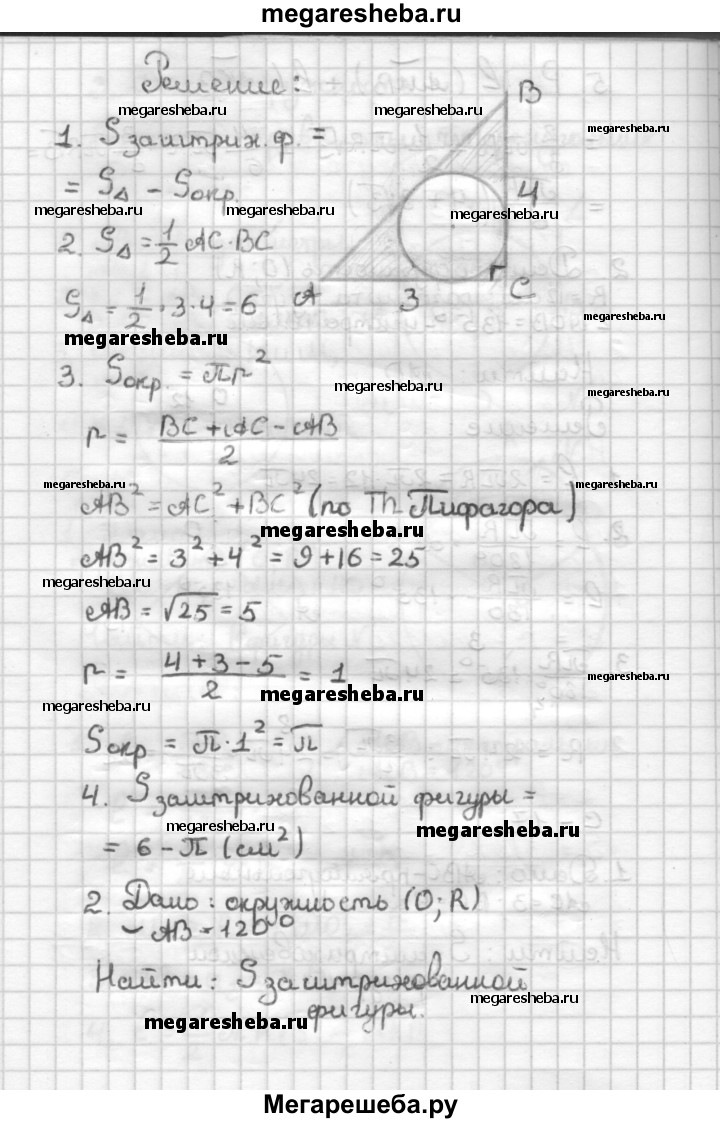 megaresheba.ru
Решение:
megaresheba.ru
megaresheba.ru
megaresheba.ru
B
1. Sзаштрих.ф. =
= S△ - Sокр.
4
megaresheba.ru
megaresheba.ru
megaresheba.ru
2. S△ = 1/2 AC·BC
A
3
г
C
S△ = 1/2 · 3·4 = 6
megaresheba.ru
megaresheba.ru
3. Sокр. = πr²
megaresheba.ru
megaresheba.ru
r = (BC + AC - AB)/2
megaresheba.ru
megaresheba.ru
AB² = AC² + BC² (по Th Пифагора)
megaresheba.ru
AB² = 3² + 4² = 9 + 16 = 25
megaresheba.ru
AB = √25 = 5
r = (4 + 3 - 5)/2 = 1
megaresheba.ru
megaresheba.ru
megaresheba.ru
Sокр = π·1² = π
4. Sзаштрихованной фигуры =
megaresheba.ru
megaresheba.ru
= 6 - π (см²)
2. Дано: окружность (O; R)
◡ AB = 120°
Найти: Sзаштрихованной
megaresheba.ru
фигуры.
megaresheba.ru
Мегарешеба.ру